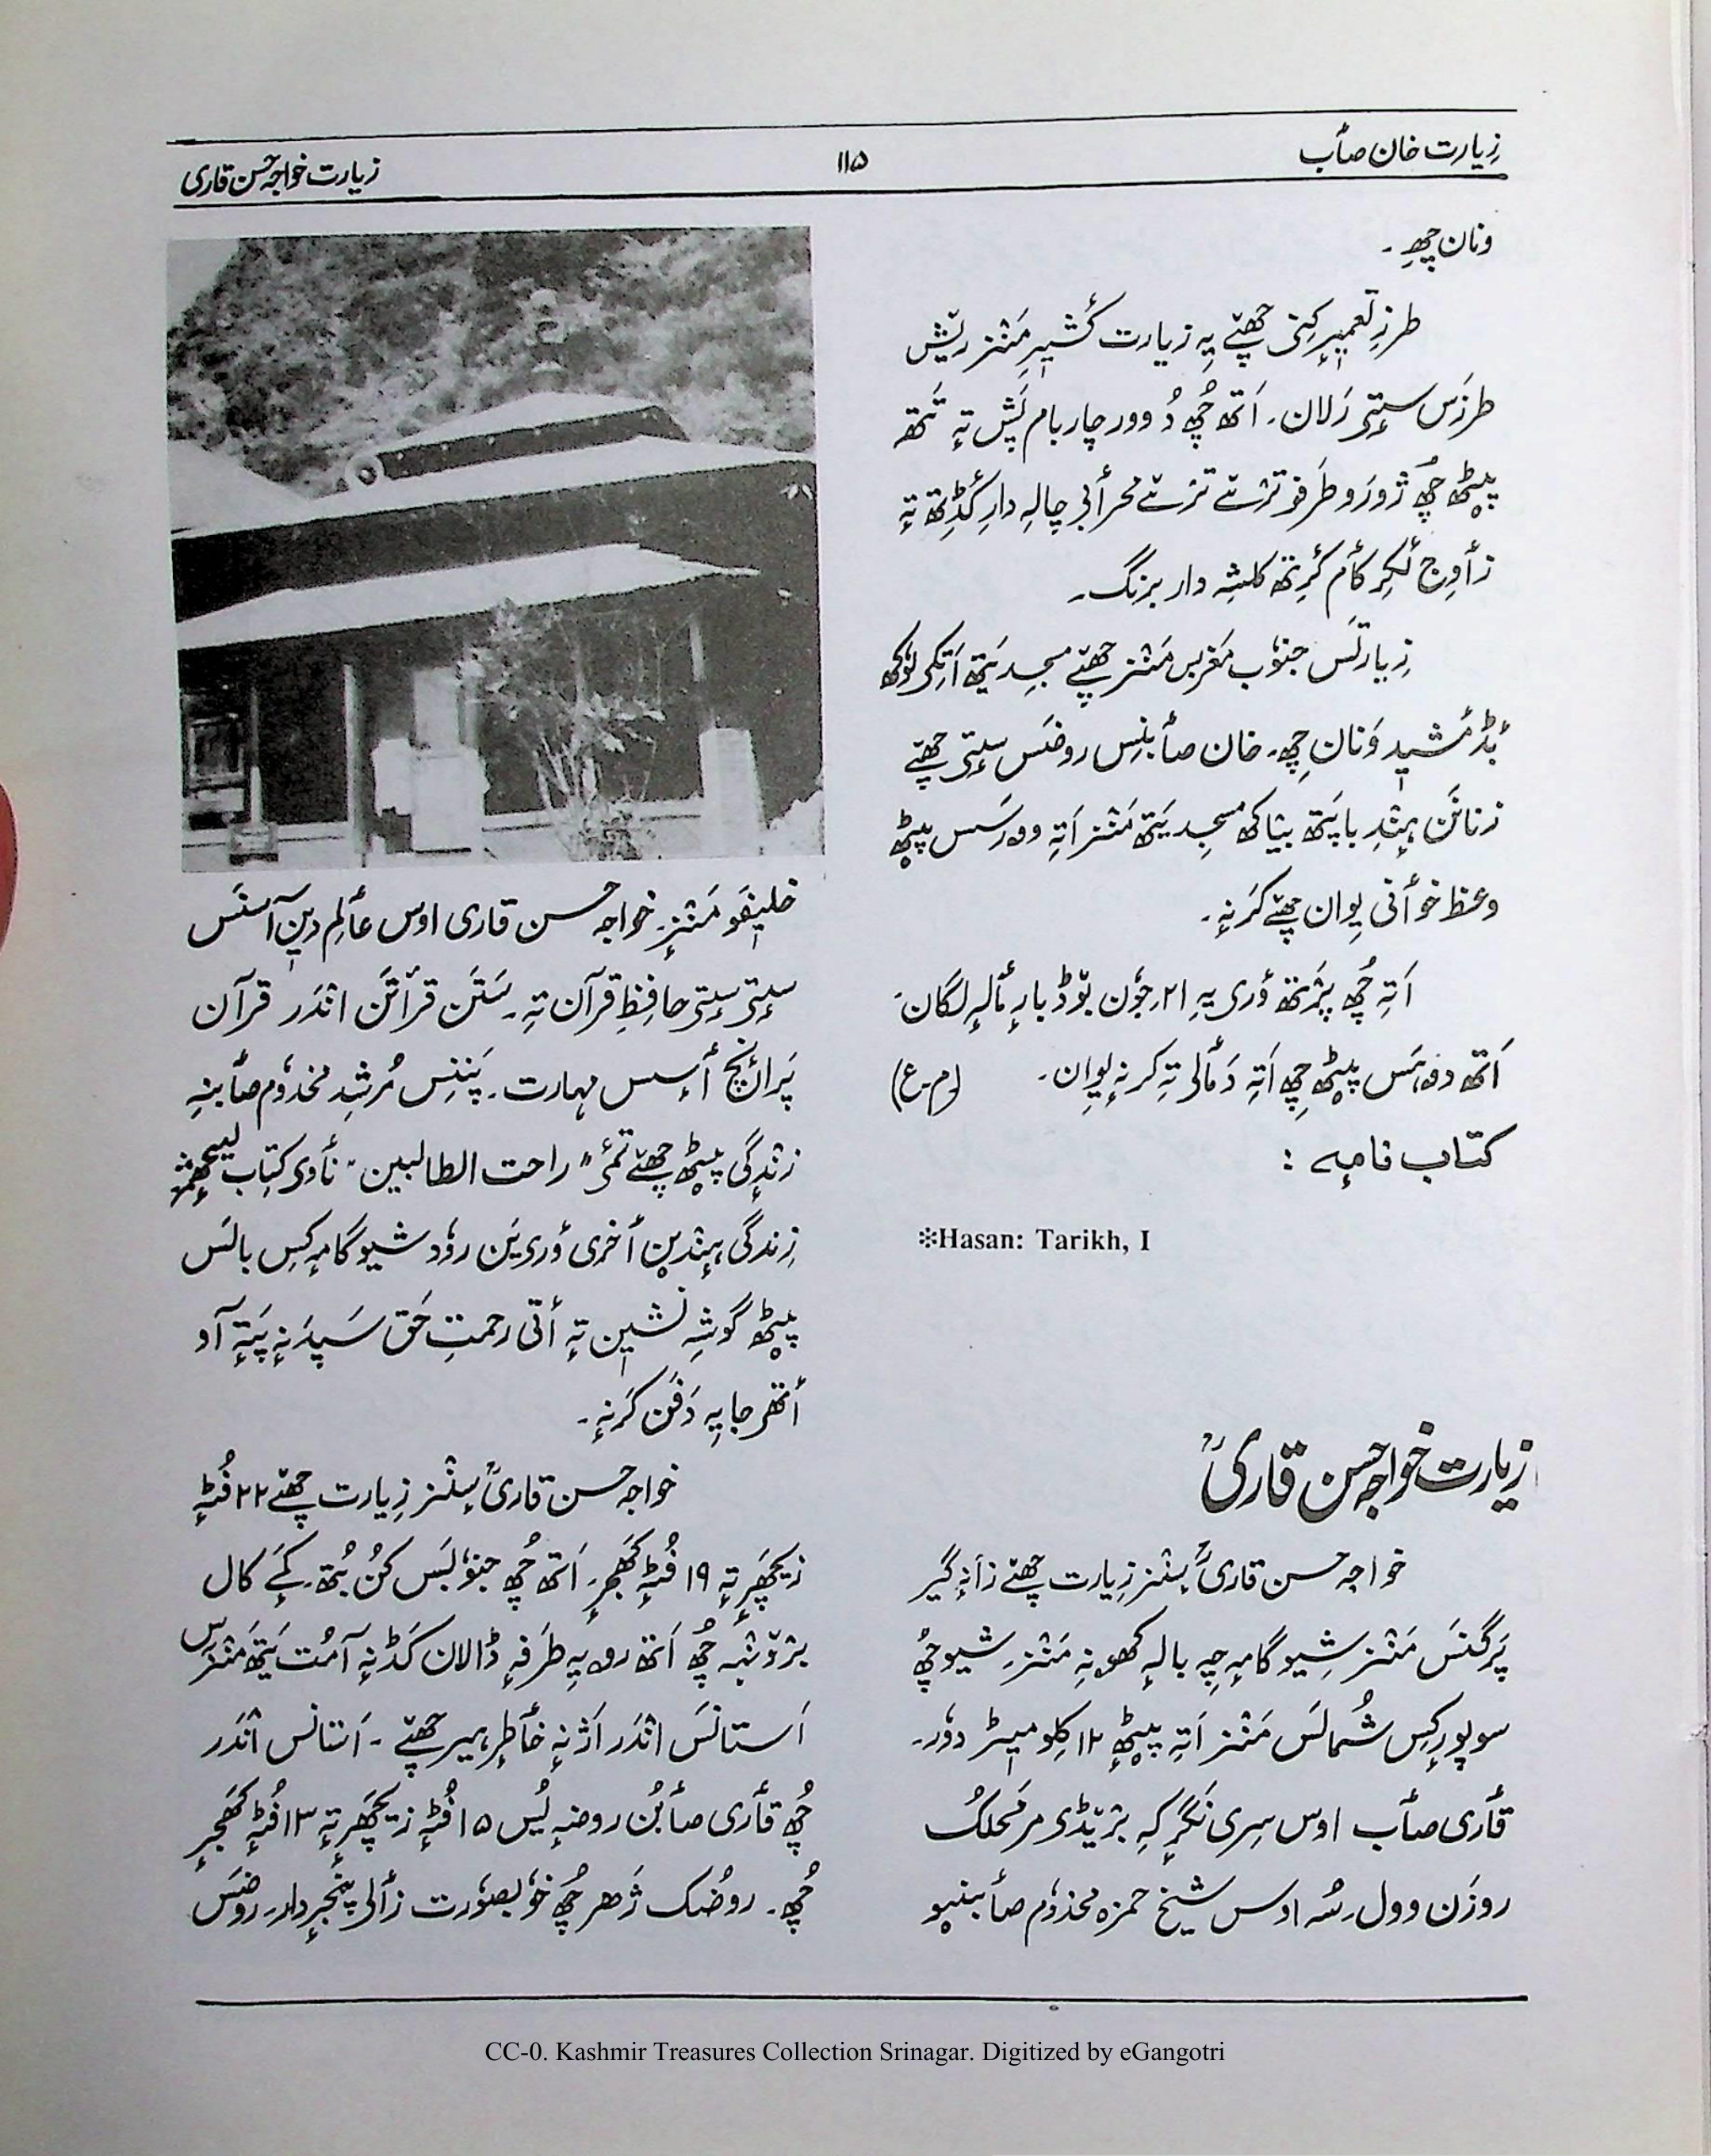 زِیارت خان صٲب
۱۱۵
زیارت خواجہ حسن قاری
ونان چھِ۔
طرزِ تعمیرٕ کِنۍ چھےٚ یہِ زیارت کٔشیرِ مَنٛز ریٚش
طرزَس سٟتۍ رَلان۔ اَتھ چُھ دُ وور چار بام پَش تہٕ تَتھ
پیٹھ چُھ ژورَو طَرفو ترٛےٚ ترٛےٚ محرٲبی چالہِ دارِ کٔڈِتھ تہٕ
زٲوِج لٔکرِ کٲم کٔرِتھ کلشہِ دار برنگ۔
زِیارتَس جنوٗب مَغربس مَنٛز چھےٚ مسجِد یَتھ اَتِکۍ لوٗکھ
بٔڈ مٔشید وَنان چِھ۔ خان صٲبنِس روضَس سٟتۍ چھےٚ
زنانَن ہِنٛدِ باپَتھ بیٛاکھ مسجِد یَتھ مَنٛز اَتہِ وورَسس پیٹھ
وعظ خوٲنی یِوان چھےٚ کَرنہٕ۔
اَتہِ چُھ پرٛتھ ؤری یہِ ۲۱؍ جوٗن بوٚڈ بارٕ مٲلہٕ لگان۔
اَتھ دوہَس پیٹھ چِھ اَتہِ دَمٲلۍ تہِ کرنہٕ یِوان۔ (م۔ع)
کتاب نامہٕ :
❊Hasan: Tarikh, I
زیارت خواجہ حسن قاریؒ
خواجہ حسن قاریؒ سٕنٛز زِیارت چھےٚ زٲنہٕ گیر
پَرگنَس مَنٛز شِیوگامہٕ چہِ بالہٕ کھونہِ مَنٛز۔ شیو چُھ
سوپورٕکِس شُمالَس مَنٛز اَتہِ پیٹھٕ ۱۲ کِلومیٖٹر دوٗر۔
قٲری صٲب اوس سِری نَگرٕ کہِ برٛیٚڈی مر مَحلُک
روزَن وول۔ سُہ اوس شیخ حمزہ مخدوٗم صٲبنیو
خلیٖفَو مَنٛزٕ۔ خواجہ حسن قاری اوس عٲلمِ دیٖن آسنَس
سٟتۍ سٟتۍ حافِظِ قرآن تہِ۔ سَتَن قرأتَن اندَر قرآن
پَرانٕچ أسس مہارت۔ پَننِس مُرشِد مخدوٗم صٲبنہِ
زِنٛدگی پیٹھ چھےٚ تَمۍ "راحت الطالبین" ناوٕی کِتاب لیچھمٕژ
زِندگی ہِنٛدیٖن ٲخری وٕری یَن روٗد شیوگامہٕ کِس بالَس
پیٹھ گوشہِ نَشیٖن تہٕ أتی رحمتِ حَق سَپدَنہٕ پَتہٕ آو
أتھۍ جایہِ دَفَن کرَنہٕ۔
خواجہ حسن قاریؒ سٕنٛز زِیارت چھےٚ ۲۲ فُٹہٕ
زیچھَرٕ تہٕ ۱۹ فُٹہٕ کھَجرٕ۔ اَتھ چُھ جنوٗبَس کُن بُتھ۔ کےٚہ کال
برٛوٚنٛہہ چُھ اَتھ رویہِ طَرفہٕ ڈالان کَڈنہٕ آمُت یَتھ مَنٛزٕس
اَستانَس اندَر اَژنہٕ خٲطرٕ ہیر چھےٚ۔ اَستانس اندَر
چُھ قٲری صٲبُن روضہٕ یُس ۱۵ فُٹہٕ زیچھَرٕ تہٕ ۱۳ فُٹہٕ کھَجرٕ
چُھ۔ روضُک ژھر چُھ خوٗبصوٗرت زٲلۍ پنجرٕدار۔ روضَس
CC-0. Kashmir Treasures Collection Srinagar. Digitized by eGangotri